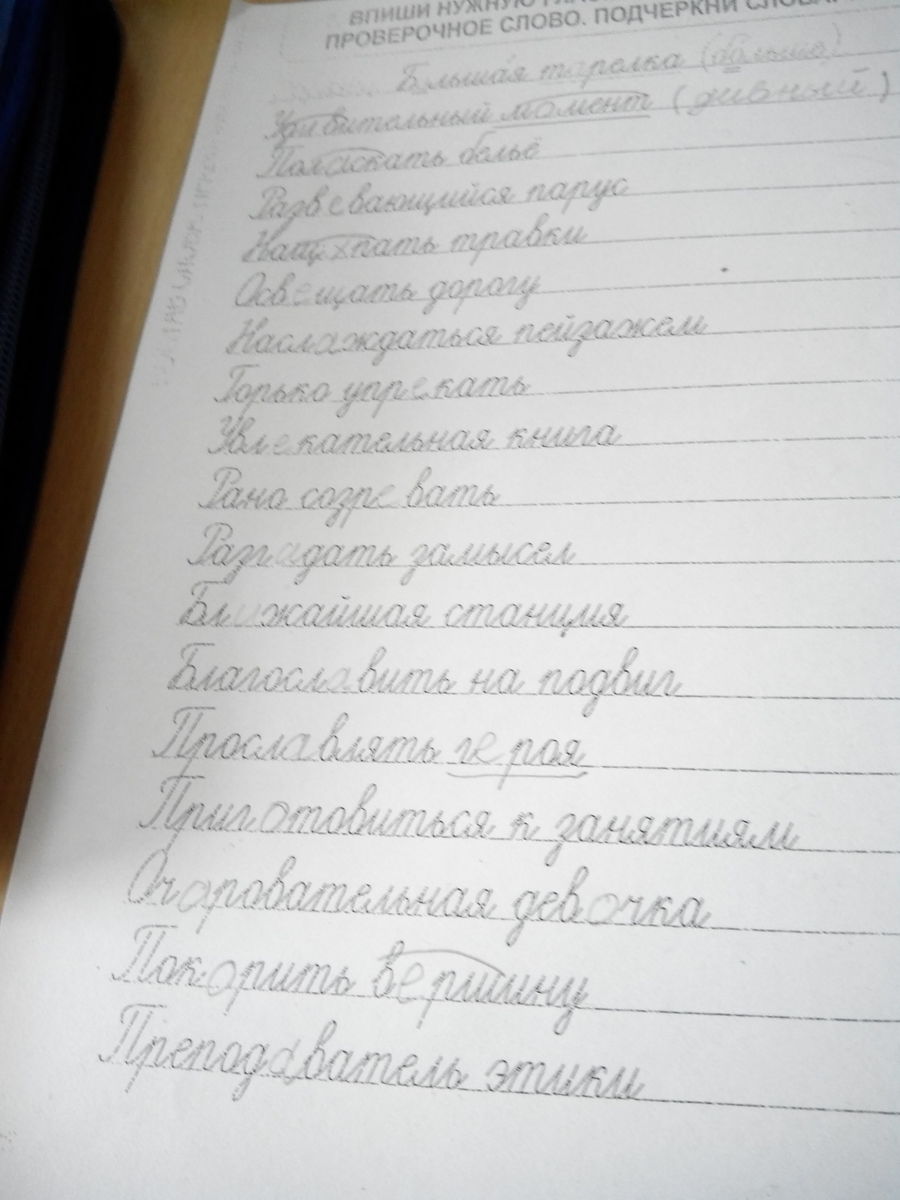 ВПИШИ НУЖНУЮ
ПРОВЕРОЧНОЕ СЛОВО. ПОДЧЕРКНИ
Большая тарелка (больше)
Удивительный момент (дивный)
Поласкать бельё
Развевающийся парус
Нащ хпать травки
Освещать дорогу
Наслаждаться пейзажем
Горько упрекать
Увлекательная книга
Рано созревать
Разгадать замысел
Ближайшая станция
Благославить на подвиг
Прославлять героя
Приготовиться к занятиям
Очаровательная девочка
Покорить вершину
Преподаватель этики